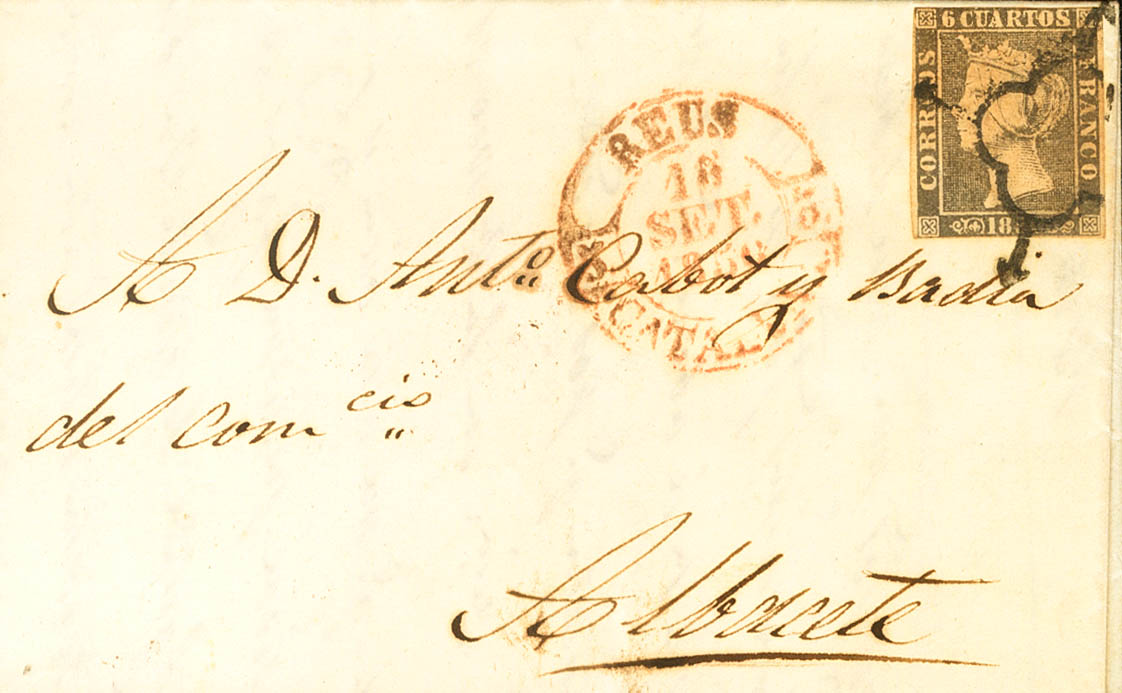 6 CUARTOS
CORREOS
FRANCO
REUS
18
SET.
1850
CATAL
A D. Antº Cabot y Badia
del comcio
Albacete